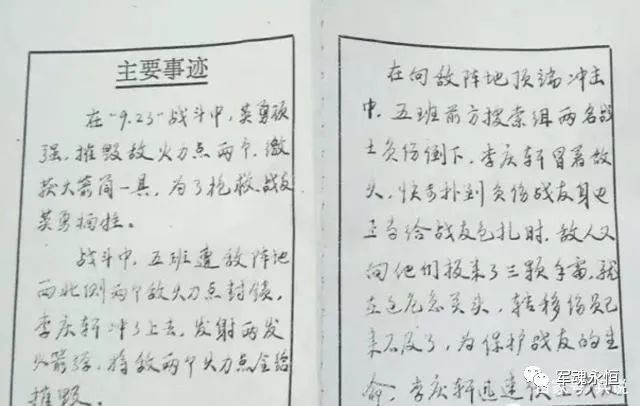 主要事迹
在"9.23"战斗中,英勇顽
强,摧毁敌火力点两个,缴
获火箭筒一具,为了抢救战友
英勇牺牲。
战斗中,五班遭敌阵地
西北侧两个敌火力点封锁,
李庆轩冲了上去,发射两发
火箭弹,将敌两个火力点全给
摧毁。
在向敌阵地顶端冲击
中,五班前方搜索组两名战
士负伤倒下,李庆轩冒着敌
火,快步扑到负伤战友身边
正当给战友包扎时,敌人又
向他们投来了三颗手雷,就
在这危急关头,转移伤员已
来不及了,为保护战友的生
命,李庆轩迅速
军魂永恒